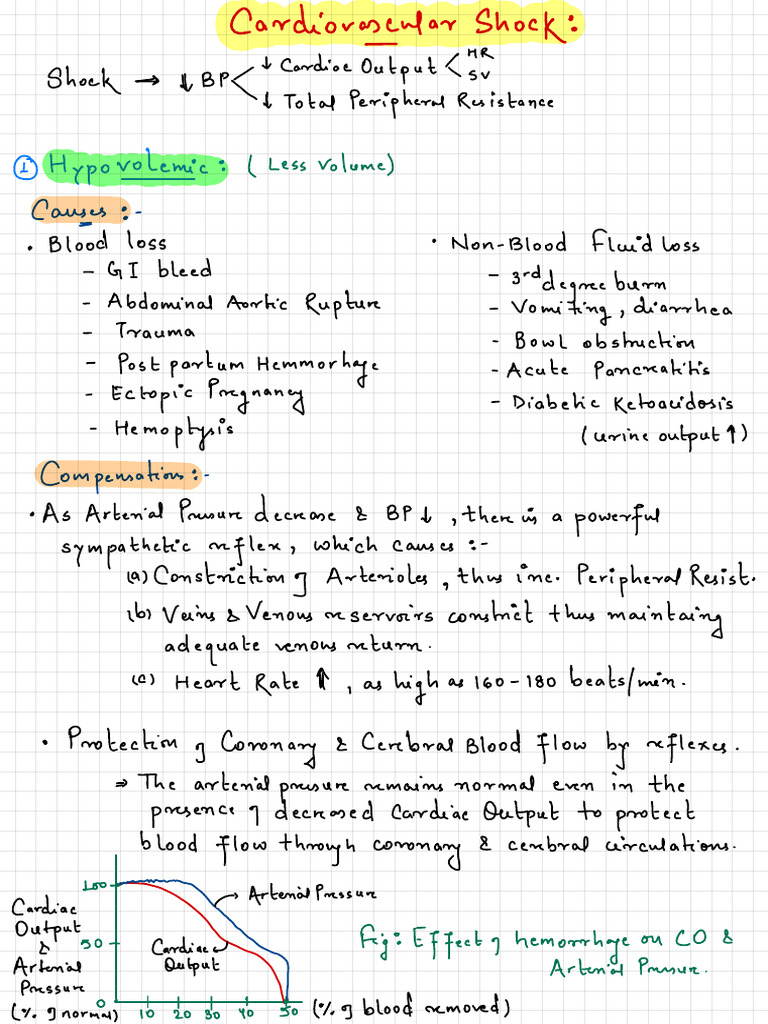 Cardiovascular Shock:
Shock → ↓ BP
↓ Cardiac Output
HR
SV
↓ Total Peripheral Resistance
① Hypovolemic: ( Less Volume)
Causes:-
• Blood loss
- GI bleed
- Abdominal Aortic Rupture
- Trauma
- Post partum Hemmorhage
- Ectopic Pregnancy
- Hemoptysis
• Non-Blood Fluid loss
- 3rd degree burn
- Vomiting, diarrhea
- Bowl obstruction
- Acute Pancreatitis
- Diabetic Ketoacidosis
(urine output ↑)
Compensation:-
• As Arterial Pressure decrease & BP↓, there is a powerful
sympathetic reflex, which causes :-
(a) Constriction of Arterioles, thus inc. Peripheral Resist.
(b) Veins & Venous reservoirs constrict thus maintaing
adequate venous return.
(c) Heart Rate ↑, as high as 160-180 beats/min.
• Protection of Coronary & Cerebral Blood flow by reflexes.
⇒ The arterial pressure remains normal even in the
presence of decreased Cardiac Output to protect
blood flow through coronary & cerebral circulations.
Cardiac
Output
&
Arterial
Pressure
(% of normal)
100
50
0
→ Arterial Pressure
Cardiac
Output
10 20 30 40 50
(% of blood removed)
Fig: Effect of hemorrhage on CO &
Arterial Pressure.